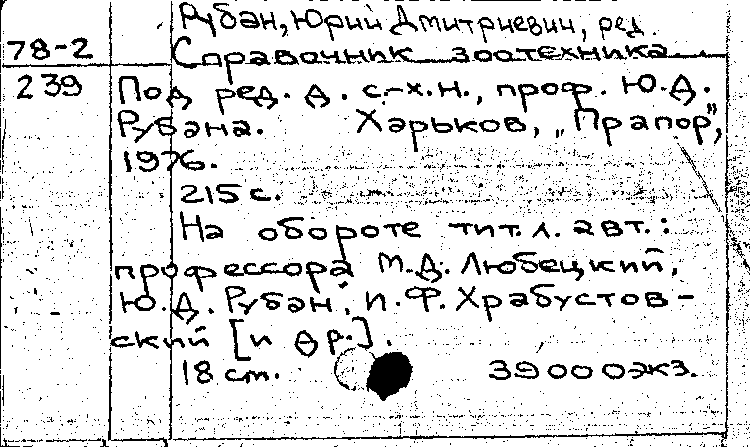 Рубан, Юрий Дмитриевич, ред.
78-2 Справочник зоотехника.
239 Под ред. д. с.-х.н., проф. Ю.Д.
Рубана. Харьков, „Прапор",
1976.
215 с.
На обороте тит. л. авт.:
профессора М.Д. Любецкий,
Ю.Д. Рубан, И.Ф. Храбустов-
ский [и др.].
18 см. 39000экз.